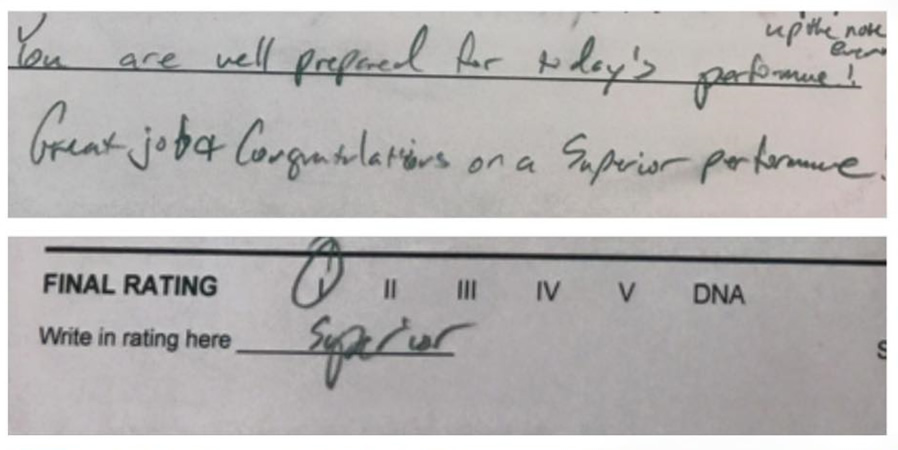 up the note
You are well prepared for today's performance!
Great job & Congratulations on a Superior performance!
FINAL RATING I II III IV V DNA
Write in rating here Superior